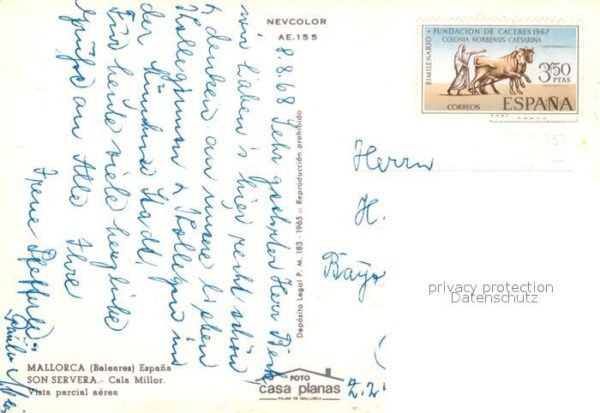 NEVCOLOR
AE.155
8.8.68
Sehr geehrter Herr
wir haben's hier recht schön
& denken an unsere lieben
Kolleginnen & Kollegen in
der
Stadt.
Für heute viele herzliche
Grüße an Alle Ihre
Irene
Depósito Legal P. M. 183 - 1965 :: Reproducción prohibida
BIMILENARIO · FUNDACION DE CACERES 1967
COLONIA NORBENSIS CAESARINA
3'50
PTAS
CORREOS
ESPAÑA
Herrn
H.
privacy protection
Datenschutz
MALLORCA (Baleares) España
SON SERVERA.- Cala Millor.
Vista parcial aérea
FOTO
casa planas
PALMA DE MALLORCA